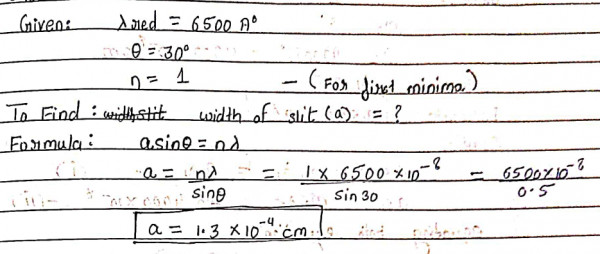 Given: λred = 6500 A°
θ = 30°
n = 1 — (For first minima)
To Find : width of slit (a) = ?
Formula: a sinθ = nλ
a = nλ/sinθ = 1 × 6500 × 10⁻⁸/sin 30 = 6500×10⁻⁸/0.5
a = 1.3 × 10⁻⁴ cm